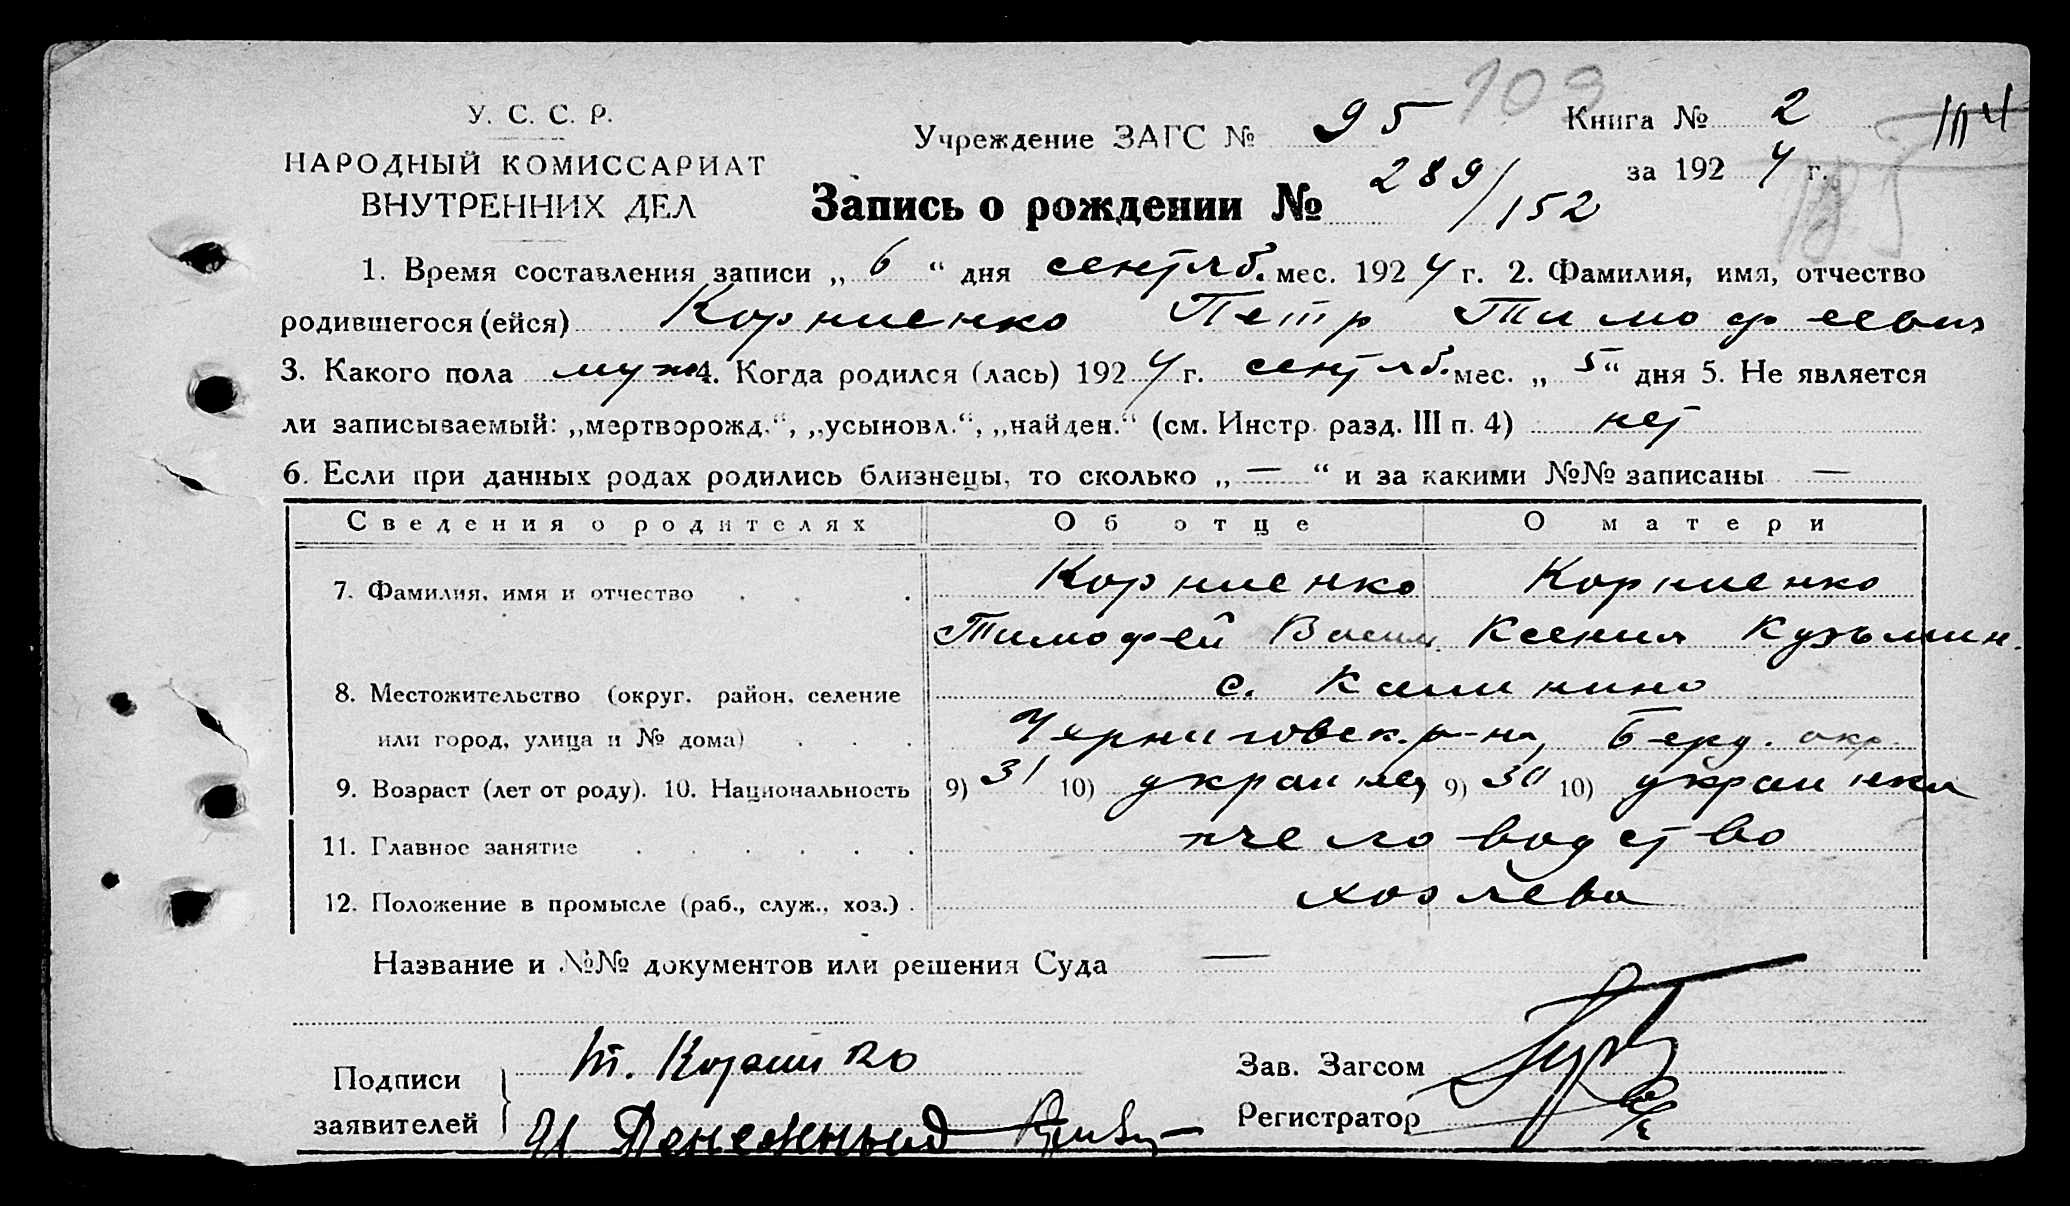 У. С. С. Р.
НАРОДНЫЙ КОМИССАРИАТ
ВНУТРЕННИХ ДЕЛ
109
Учреждение ЗАГС № 95
Книга № 2
за 1924 г.
185
Запись о рождении № 289/152
1. Время составления записи „ 6 “ дня сентяб. мес. 1924 г. 2. Фамилия, имя, отчество
родившегося (ейся) Корниенко Петр Тимофеевич
3. Какого пола муж 4. Когда родился (лась) 1924 г. сентяб. мес. „ 5 “ дня 5. Не является
ли записываемый: „мертворожд.“, „усыновл.“, „найден.“ (см. Инстр. разд. III п. 4) нет
6. Если при данных родах родились близнецы, то сколько „ — “ и за какими №№ записаны —
Сведения о родителях Об отце О матери
7. Фамилия, имя и отчество Корниенко Корниенко
Тимофей Васил. Ксения Кузьмин.
8. Местожительство (округ, район, селение с. Калинино
или город, улица и № дома) Черниговск. р-на, Берд. окр.
9. Возраст (лет от роду). 10. Национальность 9) 31 10) украинец 9) 30 10) украинка
11. Главное занятие пчеловодство
12. Положение в промысле (раб., служ., хоз.) хозяева
Название и №№ документов или решения Суда —
Подписи
заявителей
Т. Корниенко
Зав. Загсом
Регистратор